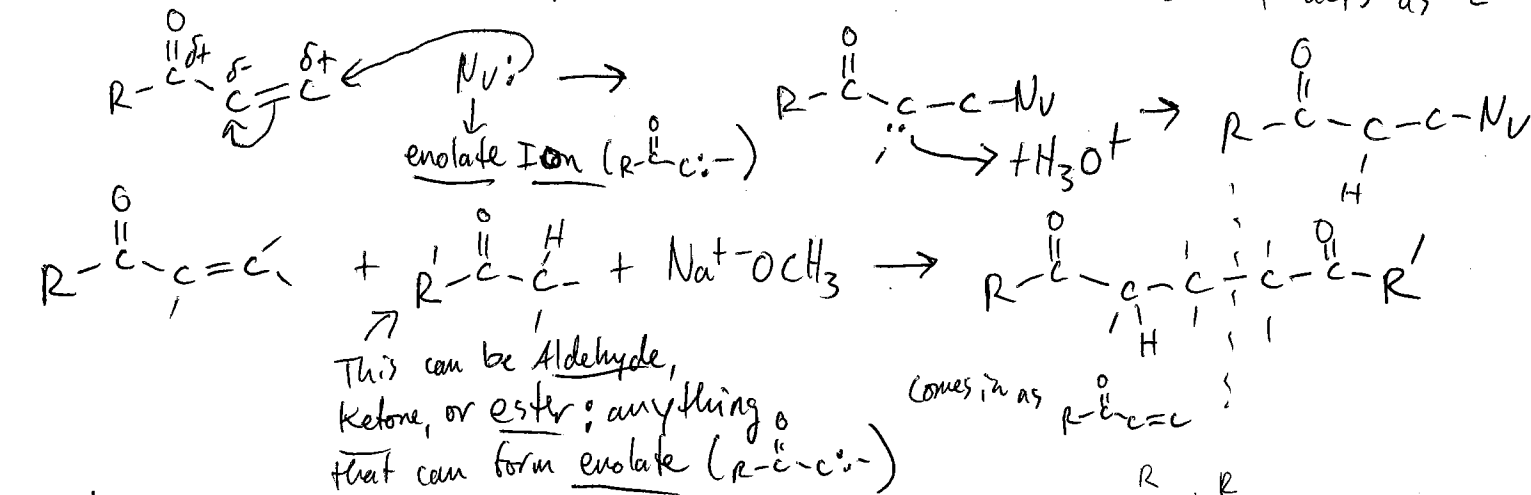 acts as
O
|| δ+ δ- δ+
R-C-C=C Nu: → R-C-C-C-Nu → R-C-C-C-Nu
enolate Ion (R-C-C:-) +H3O+ H
R-C-C=C + R'-C-C- + Na+-OCH3 → R-C-C-C-C-C-R'
H
This can be Aldehyde,
Ketone, or ester; anything
that can form enolate (R-C-C:-)
Comes in as R-C-C=C
R R